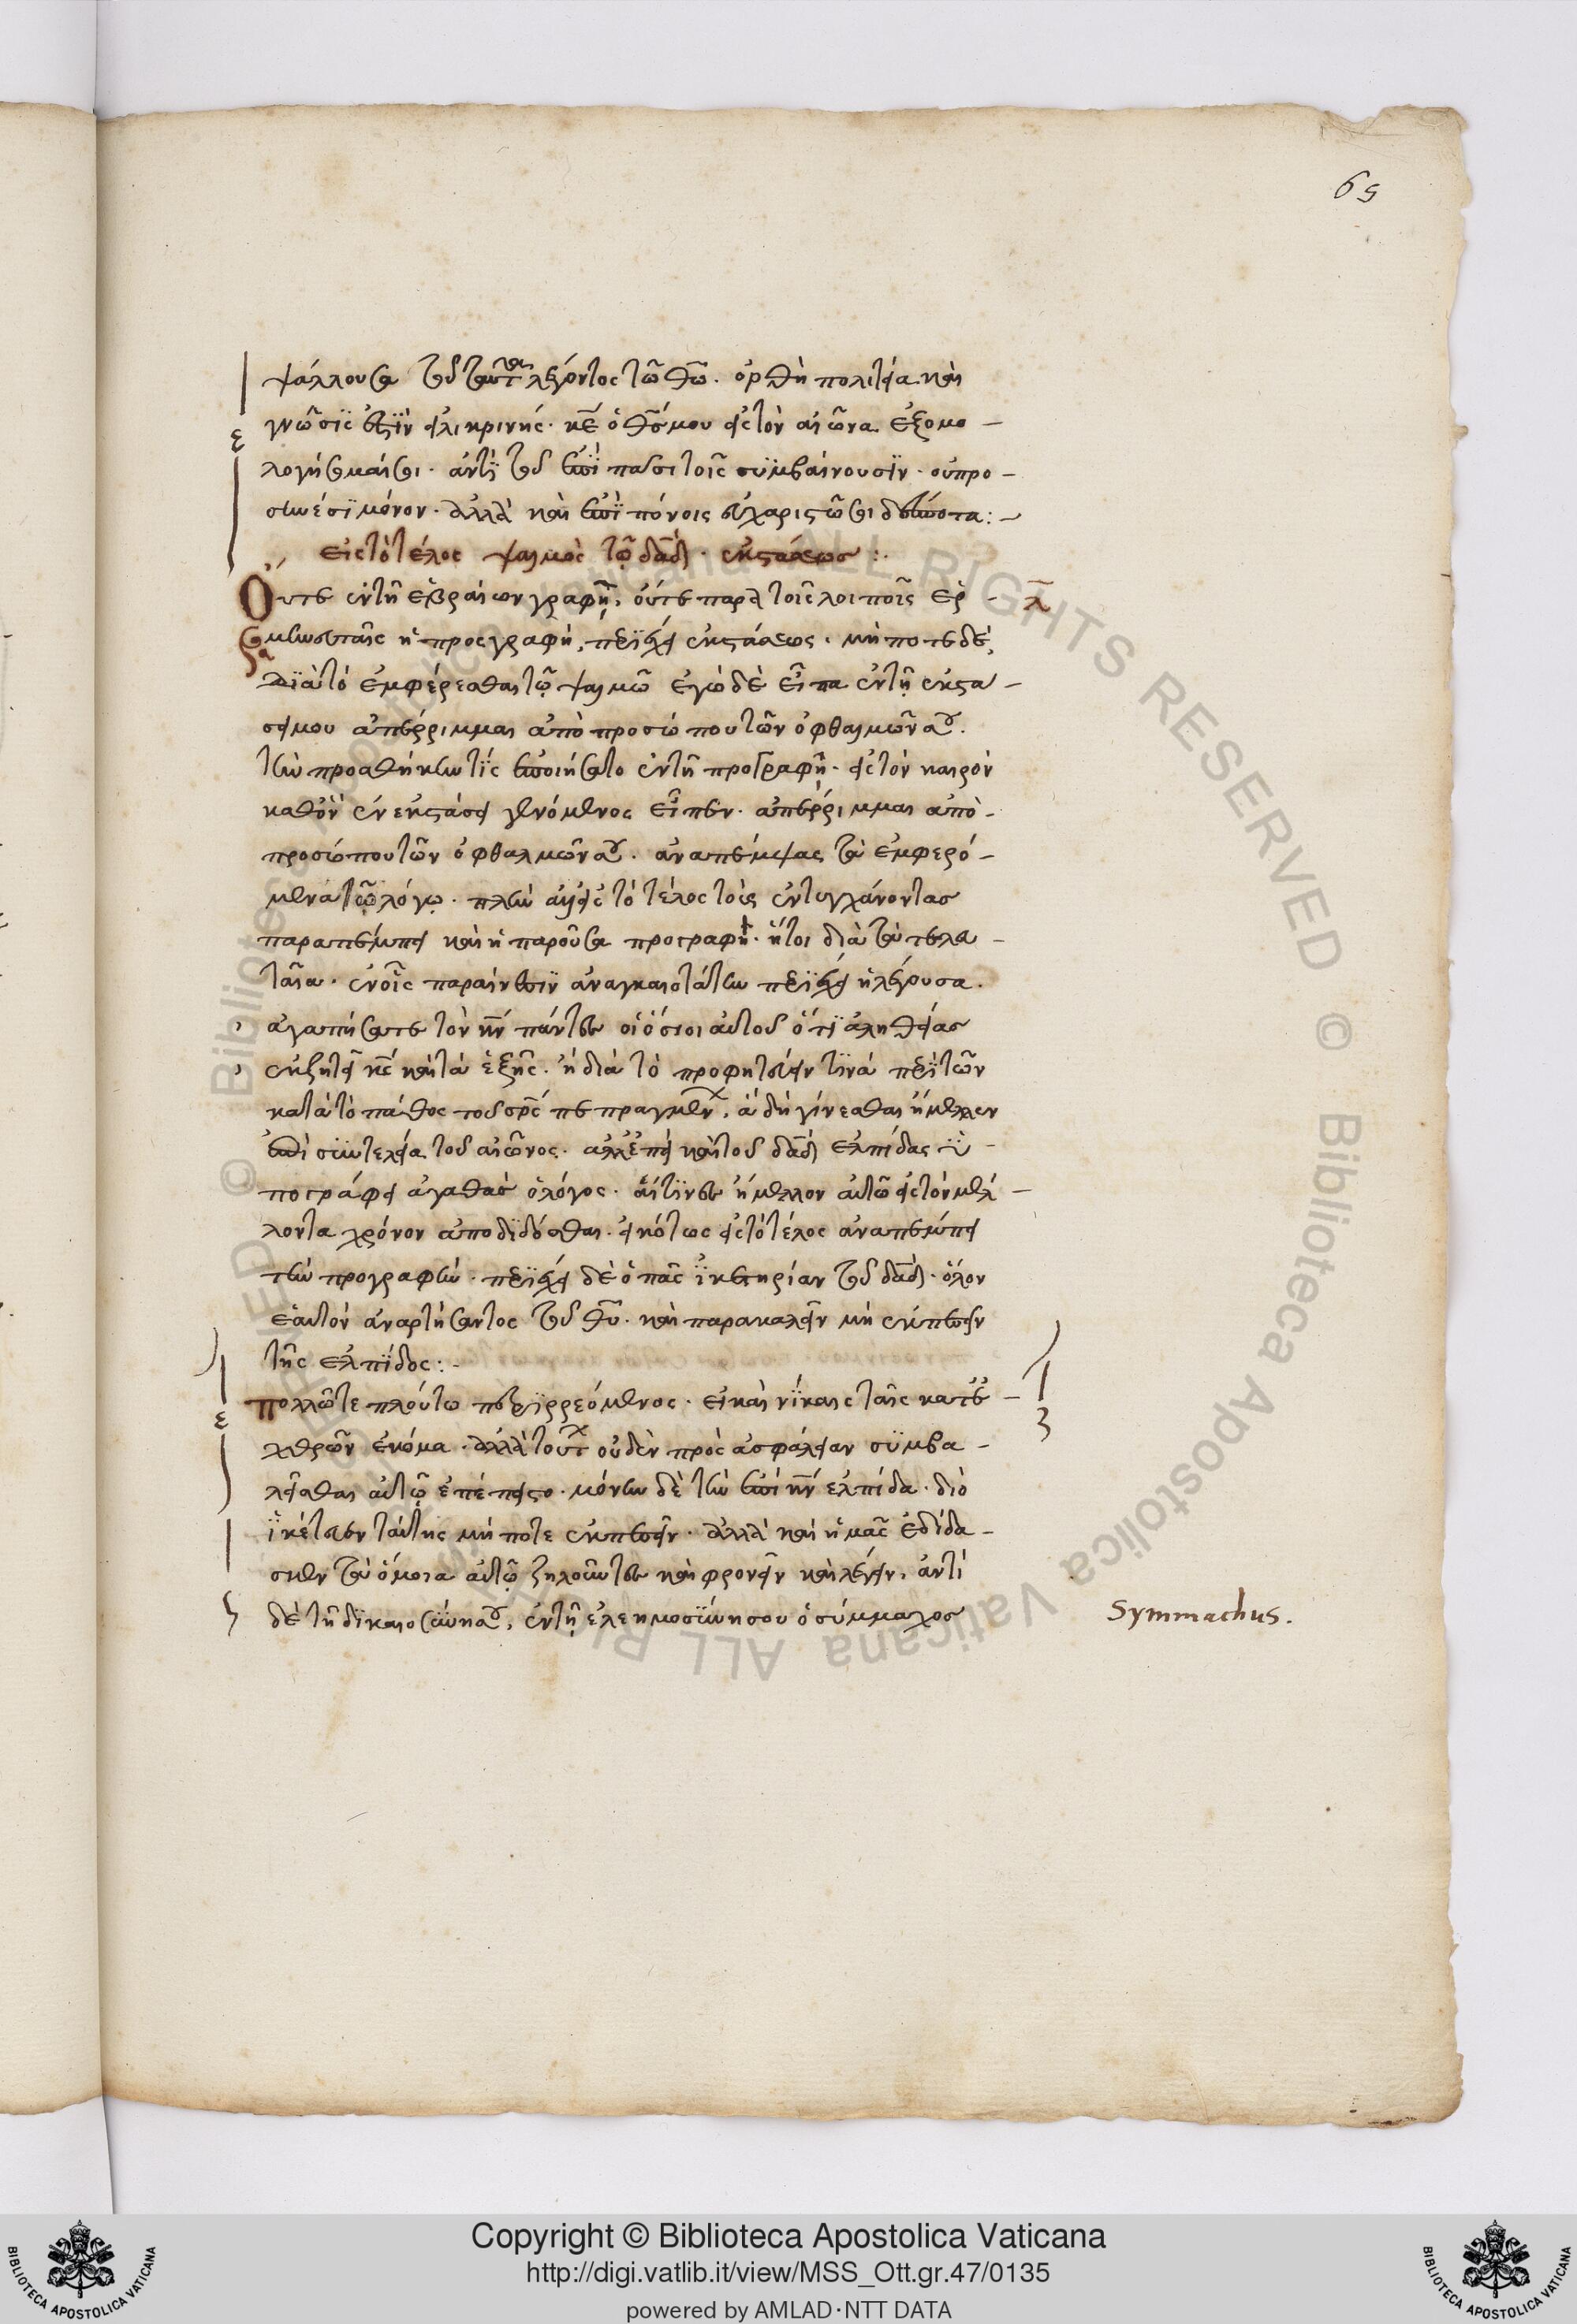 65
ψάλλουσα τοῦ ταῦτα λέγοντος τῶ θῶ. ὀρθὴ πολιτεία καὶ
γνῶσϊς ἐστϊν εἰλικρινής. κε ὁ θσ μου εἰς τὸν αἰῶνα ἐξομο -
λογήσωμαί σοι. ἀντῒ τοῦ ἐπῒ πᾶσι τοῖς συμβαίνουσϊν. οὐ προ -
σηνέσϊ μόνον. ἀλλὰ καὶ ἐπῒ πόνοις εὐχαριστῶ σοι δέσποτα: -
εἰς τὸ τέλος ψαλμὸς τῶ δαδ. ἐκστάσεως :.
Οὔτε ἐν τῆ ἑβραίων γραφῆ, οὔτε παρὰ τοῖς λοιποῖς ἑρ -
λ
μηνευταῖς ἡ προσγραφὴ, περϊέχει ἐκστάσεως. μήποτε δὲ,
δϊὰ τὸ ἐμφέρεσθαι τῶ ψαλμῶ ἐγὼ δὲ εἶπα ἐν τῆ ἐκστά -
σει μου ἀπέρριμμαι ἀπὸ προσώπου τῶν ὀφθαλμῶν σου.
τὴν προσθήκην τϊς ἐποιήσατο ἐν τῆ προγραφῆ. εἰς τὸν καιρὸν
καθ' ὃν ἐν ἐκστάσει γενόμενος εἶπεν. ἀπέρριμμαι ἀπὸ -
προσώπου τῶν ὀφθαλμῶν σου. ἀναπέμψας τὰ ἐμφερό -
μενα τῶ λόγω. πλὴν ἀεὶ εἰς τὸ τέλος τοὺς ἐντυγχάνοντας
παραπέμπει καὶ ἡ παροῦσα προγραφὴ. ἤτοι διὰ τὰ τελευ -
ταῖα. ἐν οἷς παραίνεσϊν ἀναγκαιοτάτην περϊέχει ἡ λέγουσα.
ἀγαπήσατε τὸν κν πάντες οἱ ὅσιοι αὐτοῦ ὅτϊ ἀληθείας
ἐκζητεῖ κς καὶ τὰ ἑξῆς. ἢ διὰ τὸ προφητεύειν τϊνὰ περῒ τῶν
κατὰ τὸ πάθος τοῦ σρς πεπραγμένων, ἃ δὴ γίνεσθαι ἤμελλεν
ἐπὶ συντελεία τοῦ αἰῶνος. ἀλλ' ἐπεὶ καὶ τοῦ δαδ ἐλπίδας ὑ -
πογράφει ἀγαθὰσ ὁ λόγος. αἵτϊνες ἤμελλον αὐτῶ εἰς τὸν μέλ -
λοντα χρόνον ἀποδϊδόσθαι. εἰκότως εἰς τὸ τέλος ἀναπέμπει
τὴν προγραφὴν. περϊέχει δὲ ὁ πᾶς ἱκετηρίαν τοῦ δαδ. ὅλον
ἑαυτὸν ἀναρτήσαντος τοῦ θυ. καὶ παρακαλεῖν μὴ ἐκπεσεῖν
τῆς ἐλπίδος: -
πολλῶ τε πλούτω περϊρρεόμενος. εἰ καὶ νίκαις ταῖς κατ' ἐ -
χθρῶν ἐκόμα. ἀλλὰ τούτων οὐδὲν πρὸς ἀσφάλειαν συμβα -
λεῖσθαι αὐτῶ ἐπέπειστο. μόνην δὲ τὴν ἐπὶ κν ἐλπίδα. διὸ
ἱκέτευεν ταύτης μή ποτε ἐκπεσεῖν. ἀλλὰ καὶ ἡμᾶς ἐδίδα -
σκεν τὰ ὅμοια αὐτῶ ζηλοῦντες καὶ φρονεῖν καὶ λέγειν. ἀντὶ
δὲ τῆ δϊκαιοσύνη σου, ἐν τῆ ἐλεημοσύνη σου ὁ σύμμαχος
Symmachus.
Copyright © Biblioteca Apostolica Vaticana
http://digi.vatlib.it/view/MSS_Ott.gr.47/0135
powered by AMLAD·NTT DATA